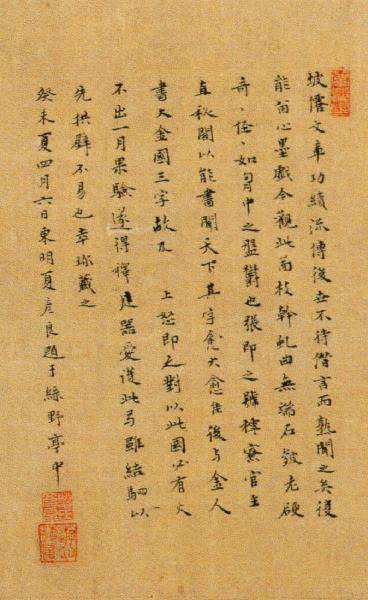 坡僊文章功績流傳後世不待僭言而熟聞之矣復
能留心墨戲今觀此枝幹虬曲無端石皴老硬
奇〻怪〻如胷中之盤鬱也張即之號樗寮官至
直秘閣以能書聞天下其字愈大愈佳後与金人
書大金國三字故及 上怒即之對以此國必有火
不出一月果驗遂得釋是器愛護此弓雖結駟以
先拱璧不易也幸珎藏之
癸未夏四月六日東明夏彥良題于綠野亭中